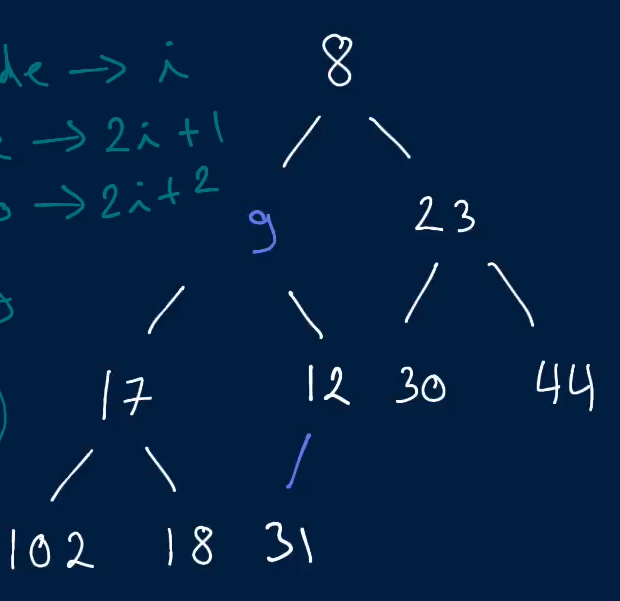 → i
8
→ 2i+1
→ 2i+2
9
23
17
12
30
44
102
18
31